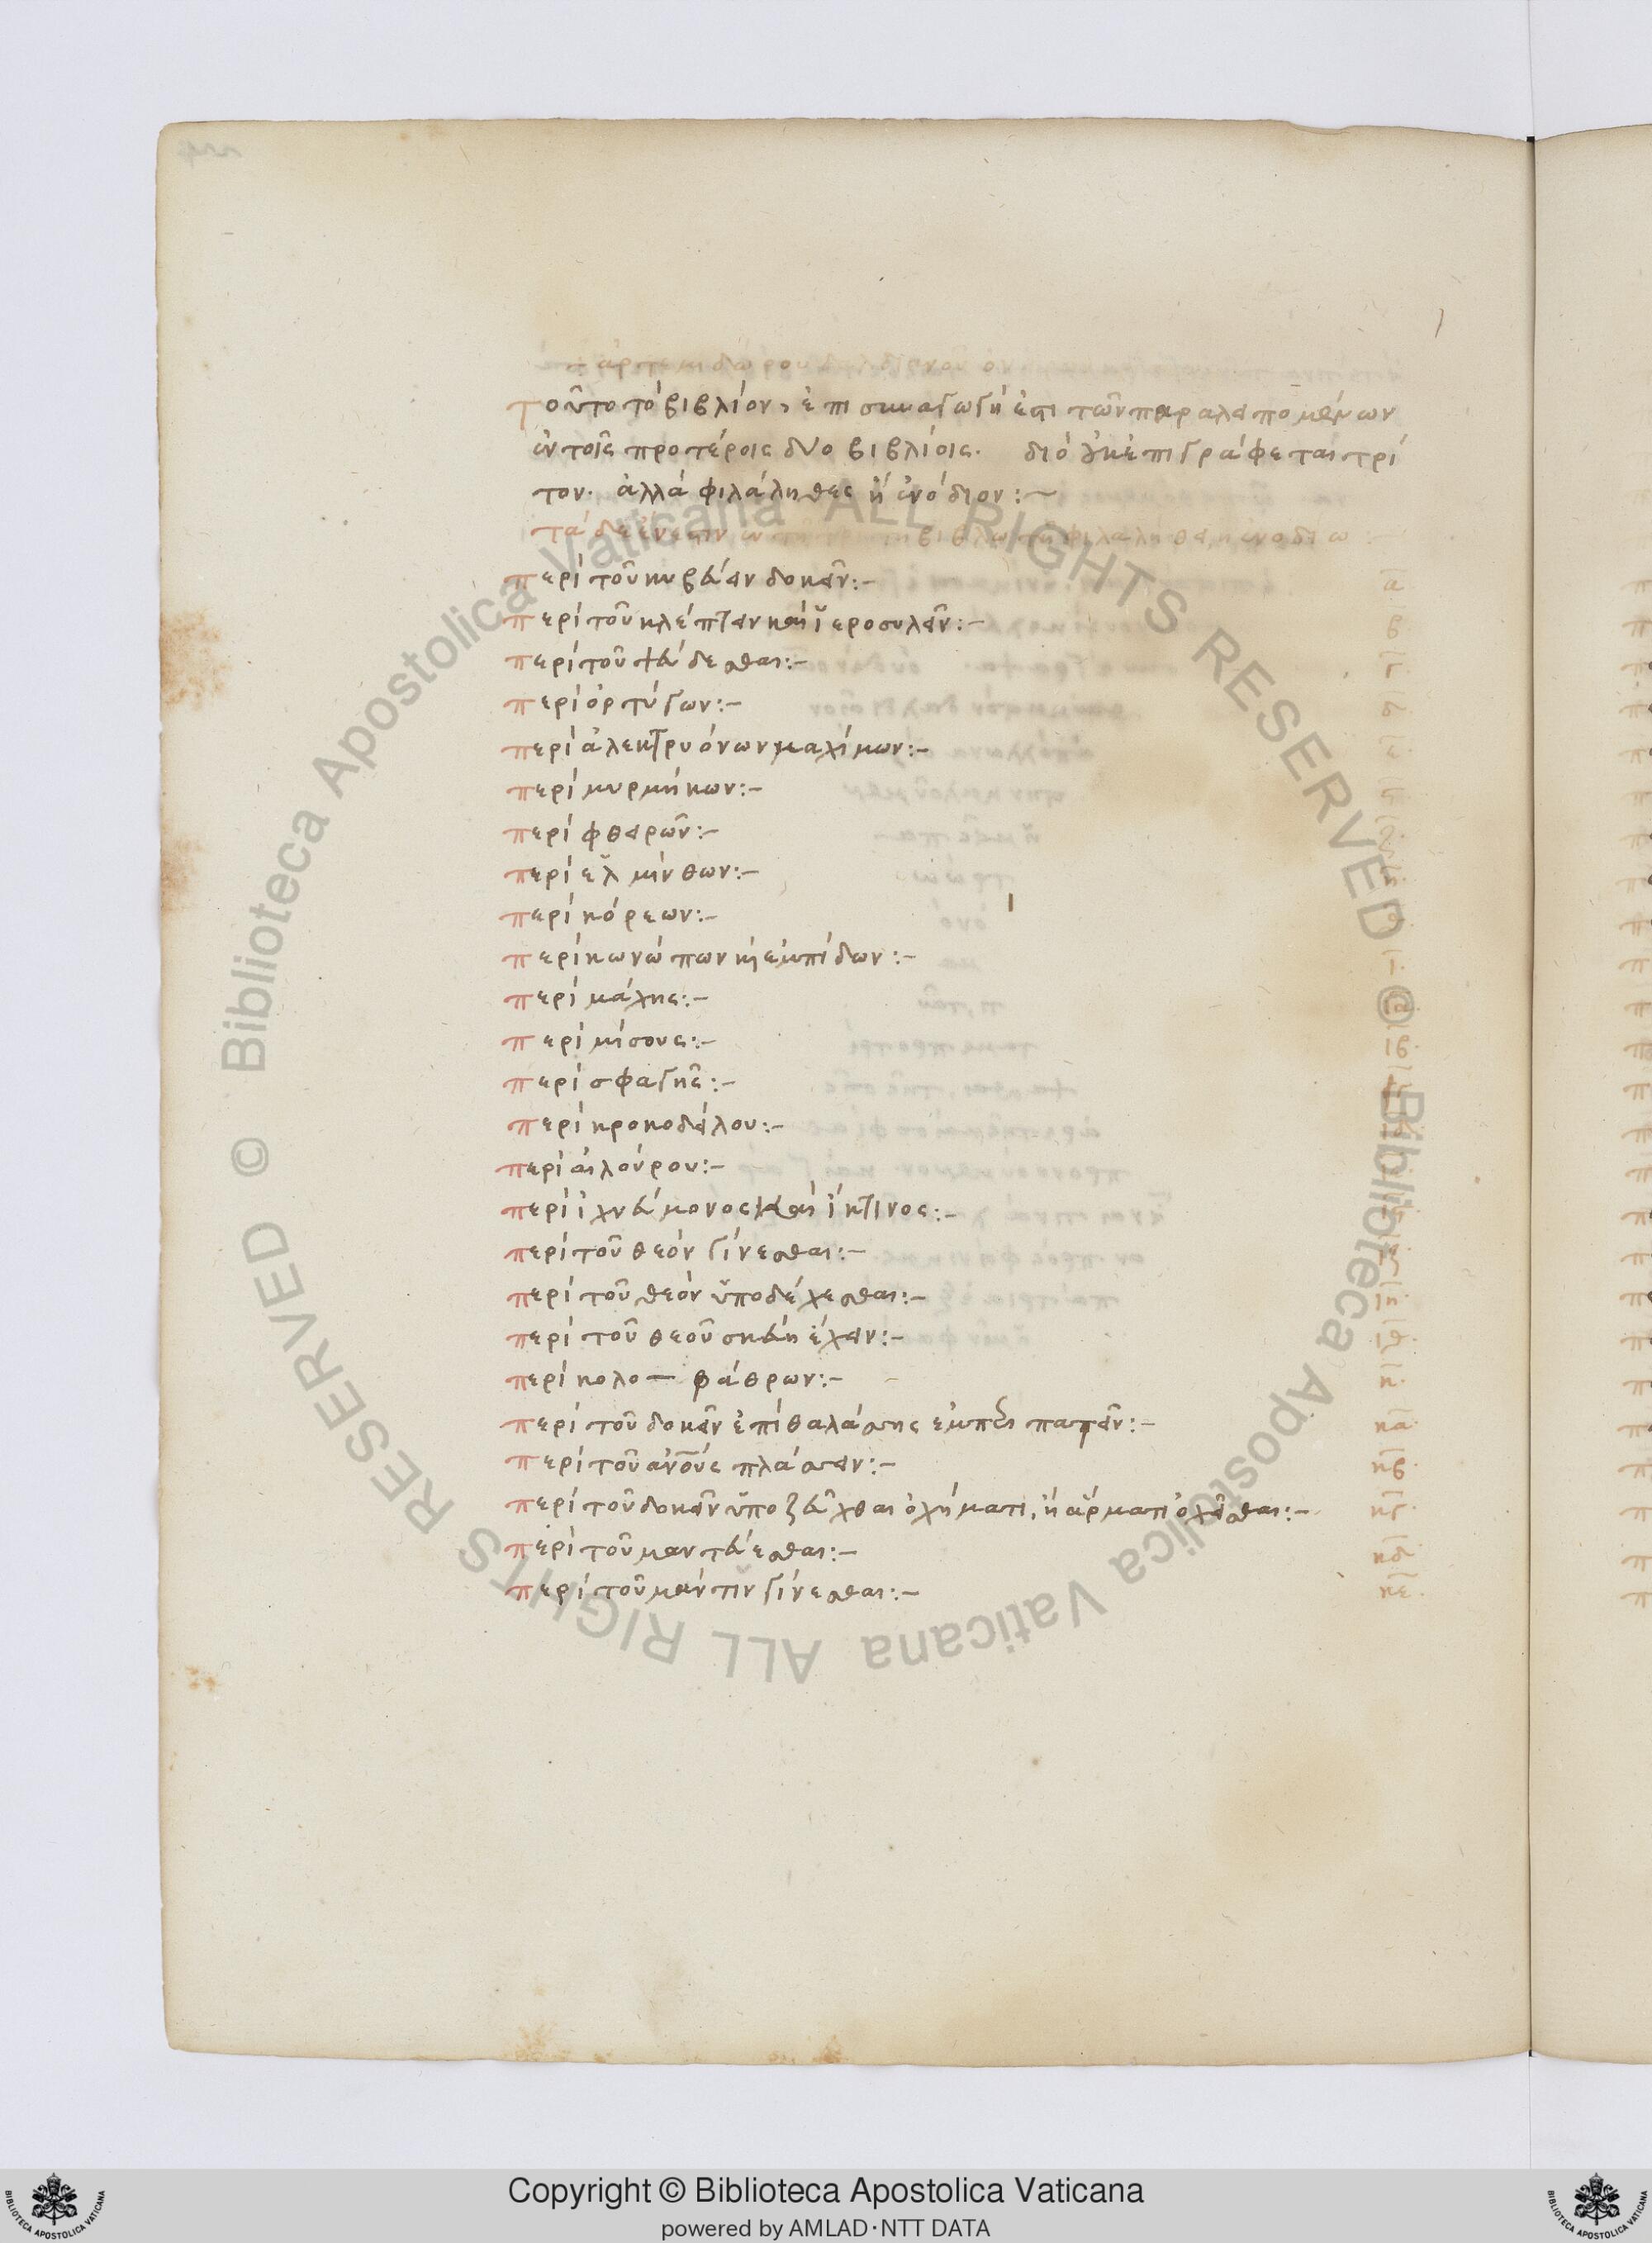 ἀρτεμιδώρου δαλδιανοῦ
τοῦτο τὸ βιβλίον, ἐπισυναγωγή ἐστι τῶν παραλειπομένων
ἐν τοῖς προτέροις δυο βιβλίοις. διὸ οὐκ ἐπιγράφεται τρί
τον. ἀλλὰ φιλάληθες ἢ ἐνόδιον:~
τάδε ἔνεστιν ἐν τῇ βίβλω τῇ φιλαλήθει, ἢ ἐνοδίω :-
περὶ τοῦ κυβεύειν δοκεῖν:- α
περὶ τοῦ κλέπτειν καὶ ἱεροσυλεῖν:- β
περὶ τοῦ ψεύδεσθαι:- γ
περὶ ὀρτύγων:- δ
περὶ ἀλεκτρυόνων μαχίμων:- ε
περὶ μυρμήκων:- ϛ
περὶ φθειρῶν:- ζ
περὶ ἑλμίνθων:- η
περὶ κόρεων:- θ
περὶ κωνώπων καὶ ἐμπίδων:- ι
περὶ μάχης:- ια
περὶ μίσους:- ιβ
περὶ σφαγῆς:- ιγ
περὶ κροκοδείλου:- ιδ
περὶ αἰλούρου:-
περὶ ἰχνεύμονος καὶ ἴκτινος:-
περὶ τοῦ θεὸν γίνεσθαι:- ιζ
περὶ τοῦ θεὸν ὑποδέχεσθαι:- ιη
περὶ τοῦ θεοῦ σκευὴ ἔχειν:- ιθ
περὶ κολο— βάθρων:- κ
περὶ τοῦ δοκεῖν ἐπὶ θαλάσσης περιπατεῖν:- κα
περὶ τοῦ ἀνους πλάσσειν:- κβ
περὶ τοῦ δοκεῖν ὑποζεῦχθαι ὀχήματι, ἢ ἅρματι ὀχεῖσθαι:- κγ
περὶ τοῦ μαντεύεσθαι:- κδ
περὶ τοῦ μάντιν γίνεσθαι:- κε
Copyright © Biblioteca Apostolica Vaticana
powered by AMLAD·NTT DATA
© Biblioteca Apostolica Vaticana ALL RIGHTS RESERVED © Biblioteca Apostolica Vaticana ALL RIGHTS RESERVED